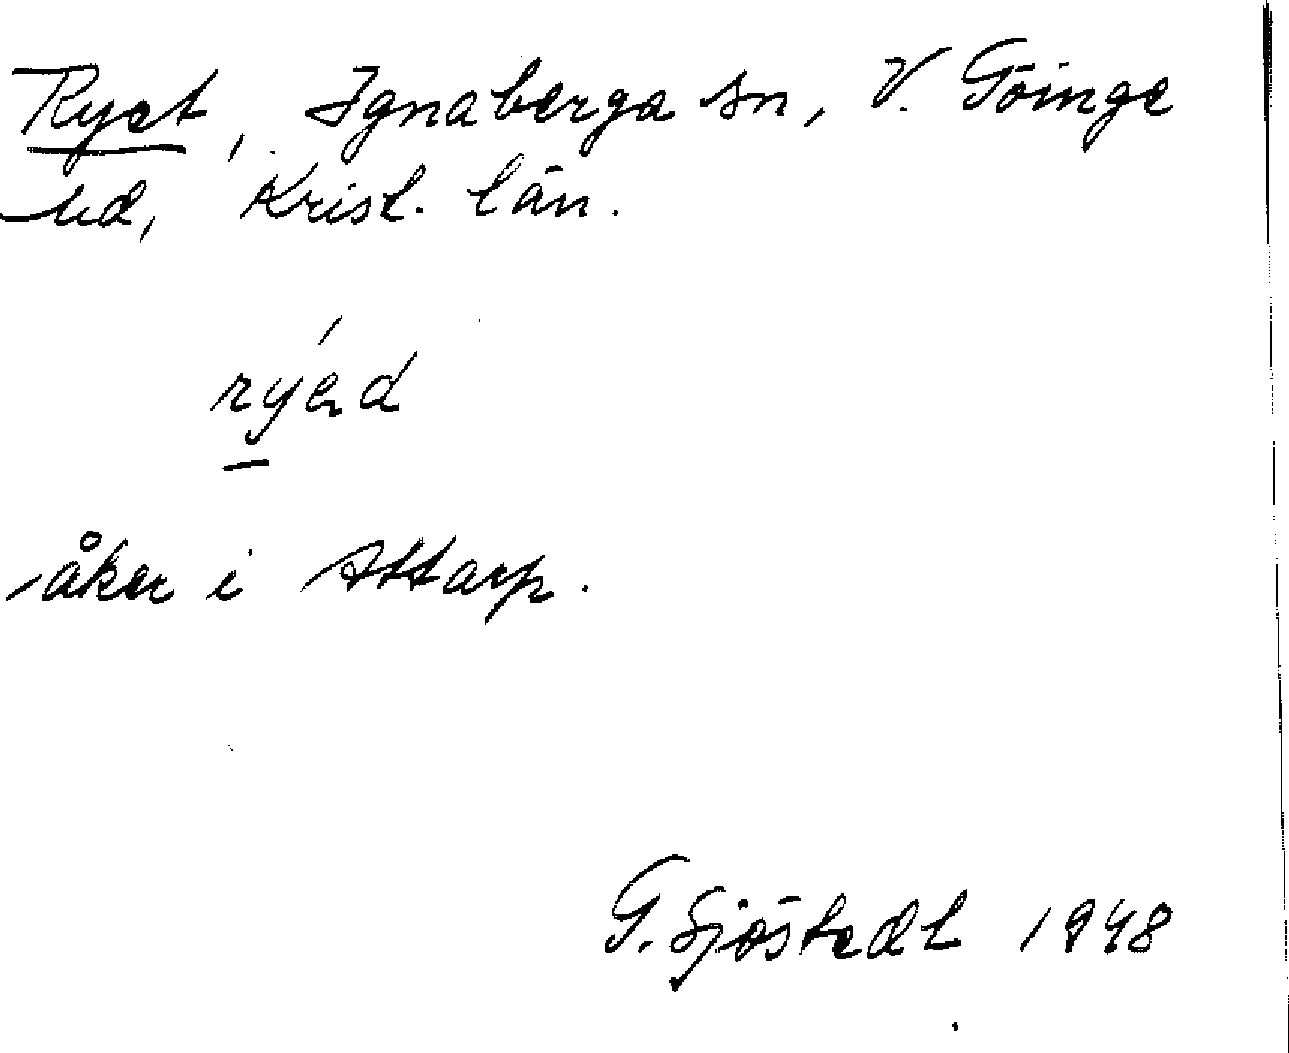 Ryet, Ignaberga sn, V. Göinge
hd, Krist. län.
ryǽd
åker i Attarp.
G. Sjöstedt 1948